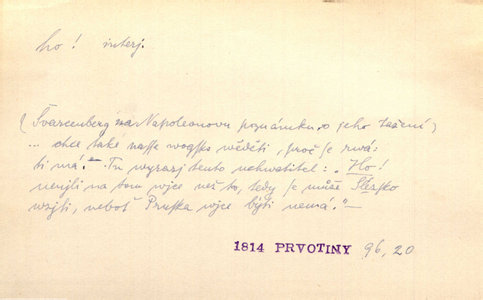 ho! interj.
(Švarcenberg na Napoleonovu poznámku o jeho tažení)
... chce také nasse wogsko wěděti, proč se rwá-
ti má." – Tu wyrazj tento uchwatitel: „Ho!
nenjli na tom wjce než to, tedy se může Slezsko
wzjti, neboť Pruska wjce býti nemá." –
1814 PRVOTINY 96, 20